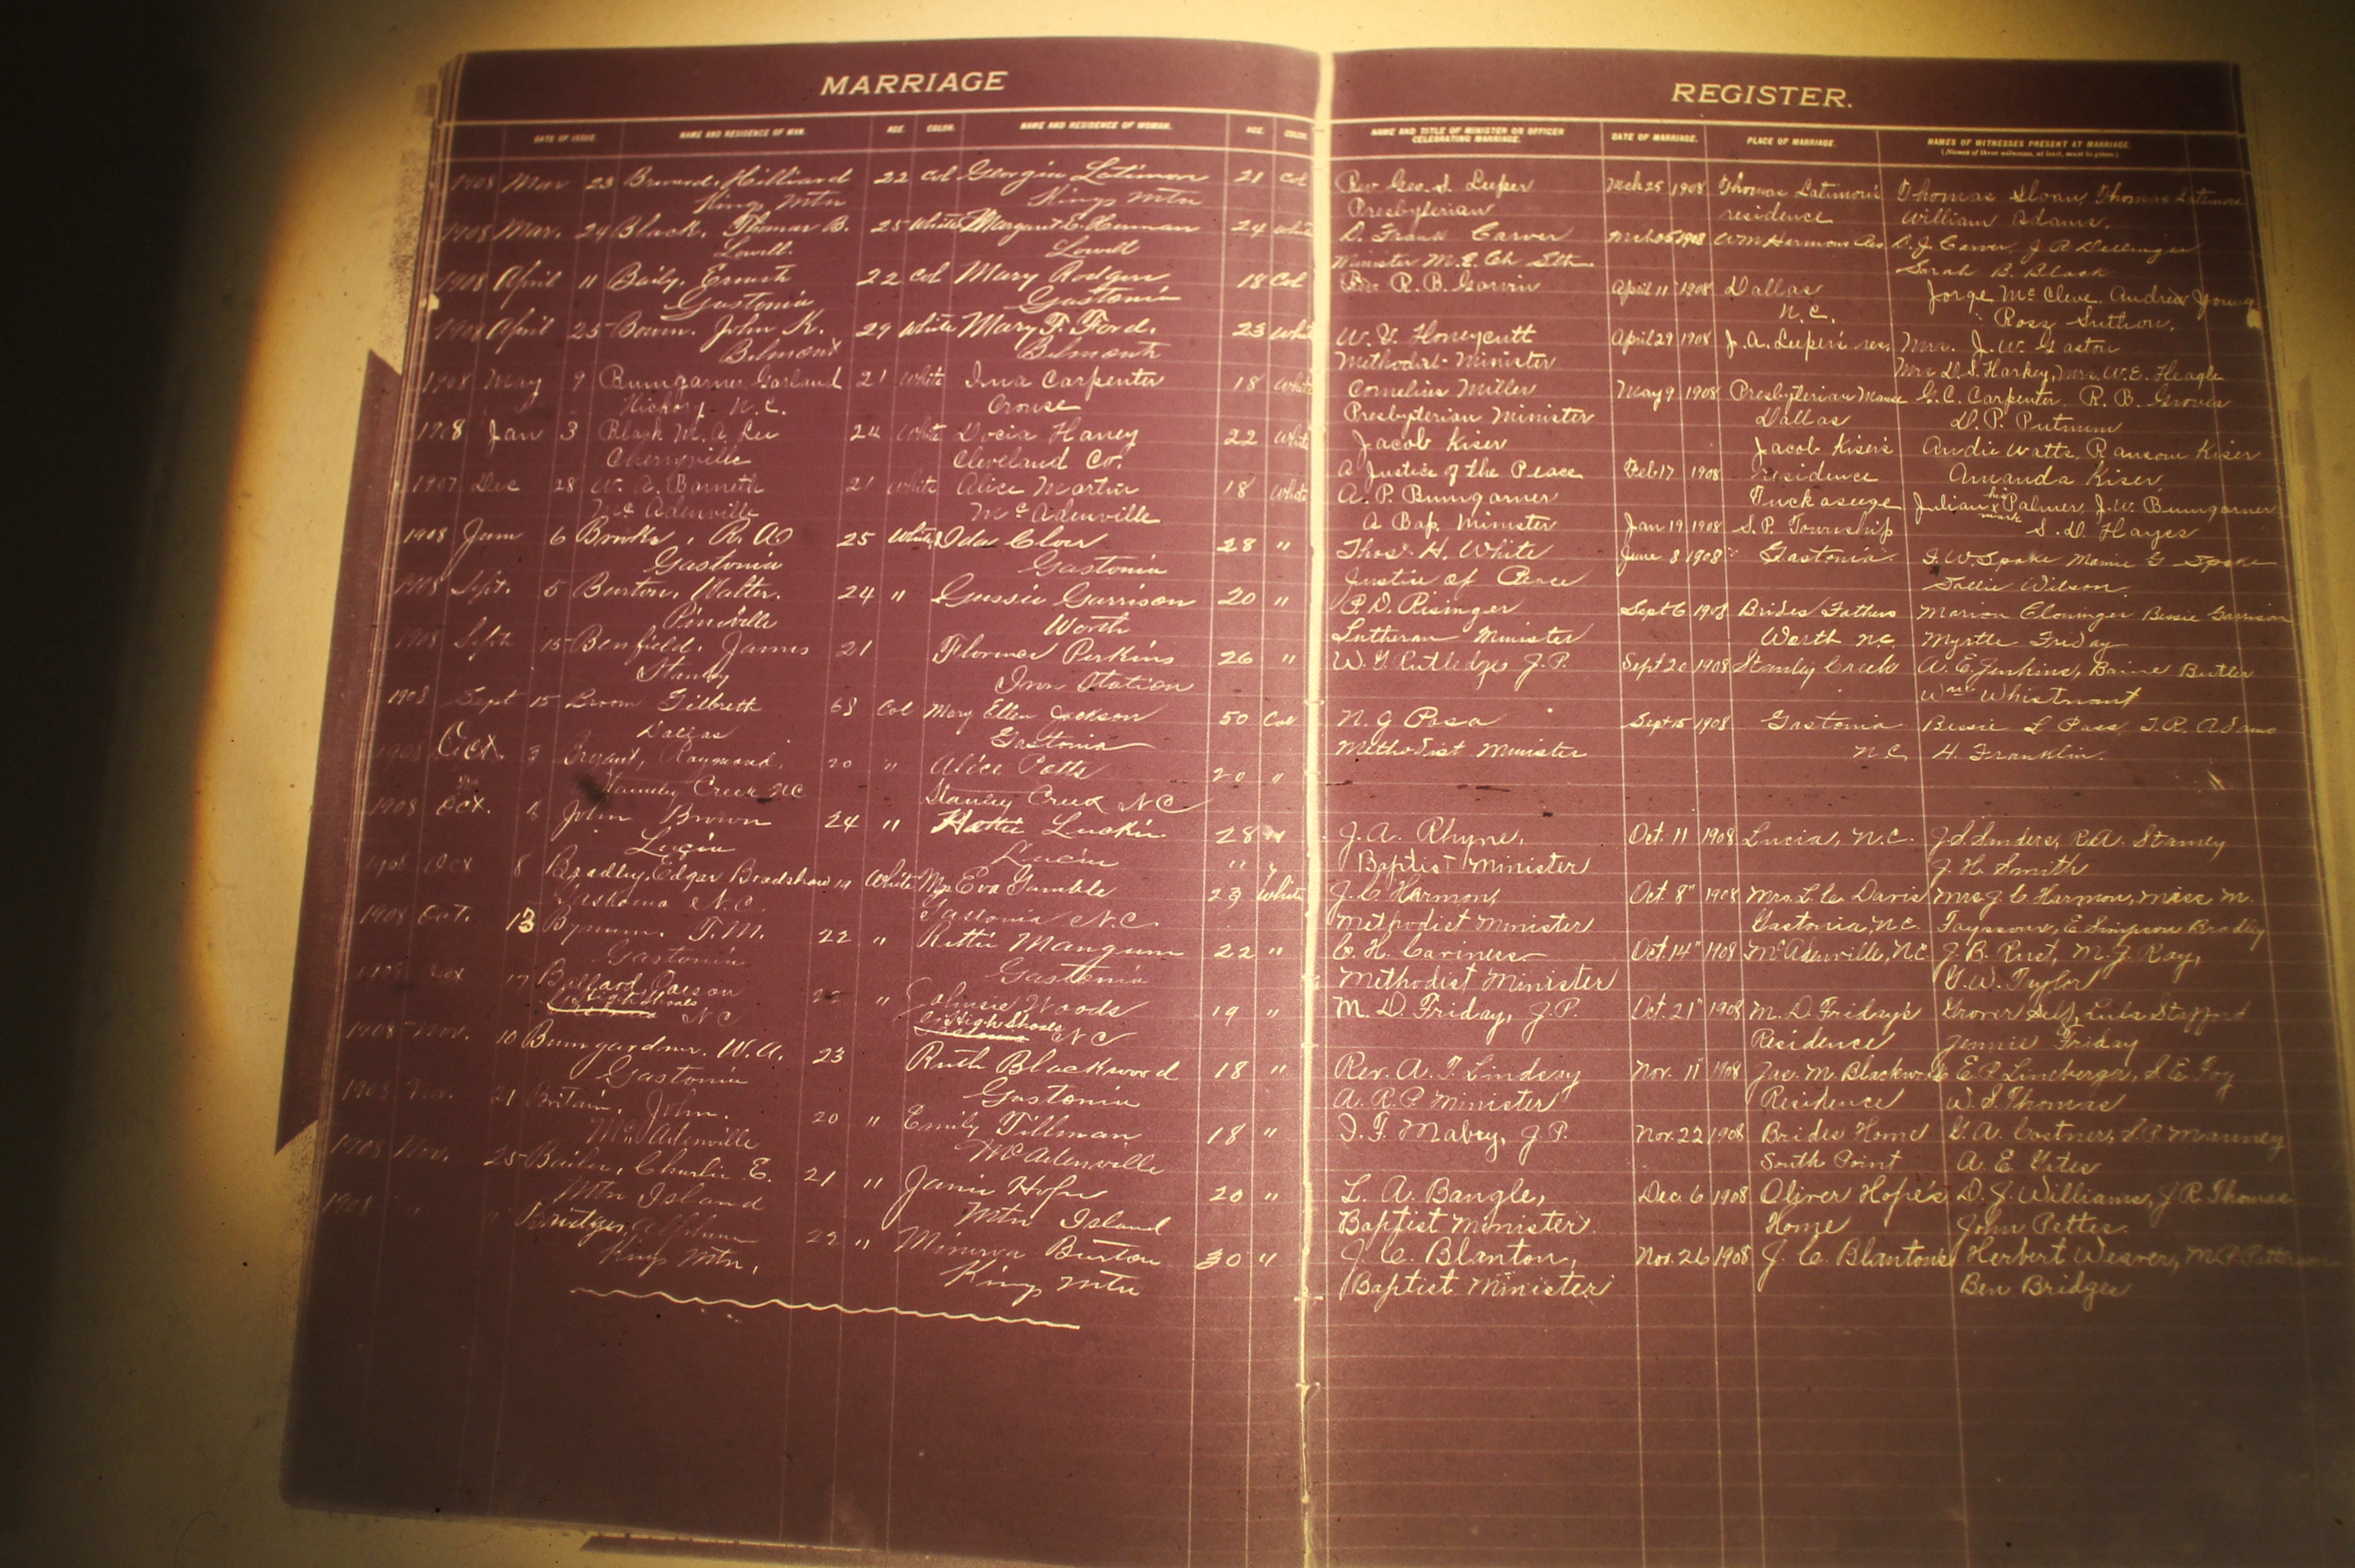 MARRIAGE
DATE OF ISSUE. NAME AND RESIDENCE OF MAN. AGE. COLOR. NAME AND RESIDENCE OF WOMAN. AGE. COLOR.
1908 Mar 23 Hilliard 22 Col Georgia Latimor 21 Col
Kings Mtn Kings Mtn
1908 Mar. 24 Black, Thomas B. 25 White Margaret E. 24 White
Lowell. Lowell
1908 April 11 Baily, 22 Col Mary 18 Col
Gastonia Gastonia
1908 April 25 John K. 29 White Mary F. Ford. 23 White
Belmont Belmont
1908 May 9 Bumgarner, Garland 21 White Ina Carpenter 18 White
Hickory N.C. Crouse
1908 Jan 3 Black M. A. Lee 24 White Docia Haney 22 White
Cherryville Cleveland Co.
1907 Dec 28 W. A. 21 White Alice Martin 18 White
McAdenville McAdenville
1908 June 6 Brooks, R. A. 25 White Ida 28 "
Gastonia Gastonia
1908 Sept. 5 Burton, Walter. 24 " Gussie Garrison 20 "
Pineville Worth
1908 Sept. 15 Benfield, James 21 Florence Perkins 26 "
Stanley Iron Station
1908 Sept 15 Broom Gilbreth 68 Col Mary Ellen Jackson 50 Col
Dallas Gastonia
1908 Oct. 3 Bryant, Raymond. 20 " Alice Potts 20 "
Stanley Creek NC Stanley Creek NC
1908 Oct. John Brown 24 " Hattie 28 "
Lucia Lucia "
1908 Oct 8 Bradley, Edgar Bradshaw 19 White Eva Gamble 23 White
Gastonia N.C. Gastonia N.C.
1908 Oct. 13 Bynum. T. M. 22 " Rettie Mangum 22 "
Gastonia Gastonia
17 Ballard, Carson " Woods 19 "
High Shoals NC High Shoals NC
1908 Nov. 10 Bumgardner. W. A. 23 Ruth Blackwood 18 "
Gastonia Gastonia
1908 Nov. 21 Britain, John. 20 " Emily Tillman 18 "
McAdenville McAdenville
1908 Nov. 25 Charlie E. 21 " Janie 20 "
Mtn Island Mtn Island
1908 " " 22 " Minerva Burton 30 "
Kings Mtn, Kings Mtn
REGISTER.
NAME AND TITLE OF MINISTER OR OFFICER CELEBRATING MARRIAGE. DATE OF MARRIAGE. PLACE OF MARRIAGE. NAMES OF WITNESSES PRESENT AT MARRIAGE.
(Names of three witnesses, at least, must be given.)
Rev Geo. S. Leeper Mch 25 1908 Thomas Latimore's Thomas Sloan, Thomas Latimore
Presbyterian residence William Adams.
D. Frank Carver Mch 25 1908 Wm Harmons Res D. J. Carver, J. R. Dellinger
Minister M. E. Ch Sth Sarah B. Black
R. B. Garvin April 11 1908 Dallas Jorge McCleve Andrew Young
N.C. Ross
W. Y. Honeycutt April 29 1908 J. A. Leeper's res. Mrs. J. W. Gaston
Methodist Minister Mrs D. S. Harkey, Mrs. W. E. Fleagle
Cornelius Miller May 9 1908 Presbyterian Manse G. C. Carpenter R. B. Groves
Presbyterian Minister Dallas D. P. Putnum
Jacob Kiser Jacob Kiser's Andie Watts, Ransom Kiser
A Justice of the Peace Feb 17 1908 residence Amanda Kiser
A. P. Bumgarner Tuckaseege Julian his x mark Palmer, J. W. Bumgarner
A Bap. Minister Jan 19 1908 S. P. Township S. D. Hayes
Thos. H. White June 8 1908 Gastonia J. W. Spake Mamie G Spake
Justice of Peace Sallie Wilson.
P. D. Risinger Sept 6 1908 Brides Fathers Marion Cloninger Bessie Garrison
Lutheran Minister Worth N.C. Myrtle Friday
W. G. Rutledge J.P. Sept 20 1908 Stanley Creek A. E. Jenkins, Butler
Wm Whistnant
N. G Pasa Sept 15 1908 Gastonia Bessie L Pass, T. R. Adams
Methodist Minister N.C. H. Franklin.
J. A. Rhyne, Oct. 11 1908 Lucia, N.C. J. S. Sanders, R. A. Stamey
Baptist Minister J. H. Smith
J. C. Harmon, Oct. 8" 1908 Mrs. L. C. Davis Mrs J. C. Harmon, Miss M.
Methodist Minister Gastonia, N.C. E Simpson Bradley
C. H. Oct. 14" 1908 McAdenville, N.C. J. B. Rust, M. J. Ray,
Methodist Minister G. W. Taylor
M. D. Friday, J.P. Oct. 21" 1908 M. D. Friday's Grover Self, Lula Stafford
Residence Jennie Friday
Rev. A. T. Lindsay Nov. 11" 1908 Jas. M. Blackwood E. P. Lineberger, S. E. Foy
A. R. P. Minister Residence W. S. Thomas
I. F. Mabry, J.P. Nov. 22 1908 Brides Home G. A. Costner, S. P. Mauney
South Point A. E. Yates
L. A. Bangle, Dec. 6 1908 Oliver Hope's D. J. Williams, J. R. Thomas
Baptist Minister. Home John Pettes.
J. C. Blanton, Nov. 26 1908 J. C. Blantons Herbert Weaver,
Baptist Minister Ben Bridges